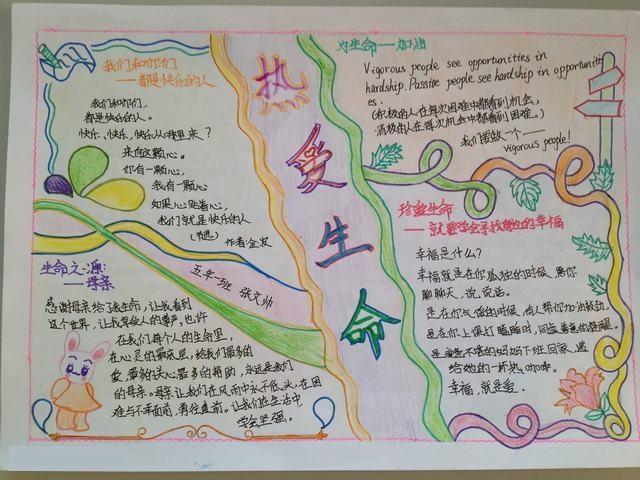 热爱生命
我们和你们
——都是快乐的人
我们和你们,
都是快乐的人。
快乐、快乐、快乐从哪里来?
来自这颗心。
你有一颗心,
我有一颗心
如果心贴着心,
我们就是快乐的人
作者:金波
五年一班 张文帅
生命之源:
——母亲
感谢母亲给了我生命,让我看到
这个世界,让我享受人的尊严,也许
在我们每个人的生命里,
在心灵的最底层,给我们最多的
爱,最多的关心最多的帮助,永远是我们
的母亲。母亲让我们在风雨中永不低头,在困
难与不幸面前,勇往直前。让我们在生活中
学会坚强。
为生命——加油
Vigorous people see opportunities in
hardship. Passive people see hardship in opportuniti
es.
(积极的人在每次困难中都看到机会,
消极的人在每次机会中都看到困难。)
我们要做一个——
vigorous people!
珍重生命
——就要学会寻找她的幸福
幸福是什么?
幸福就是在你孤独的时候,陪你
聊聊天,说说话。
是在你气馁的时候,有人帮你加油鼓劲。
是在你上课打瞌睡时,同桌善意的提醒。
是疲惫不堪的妈妈下班回家,递
给她的一杯热咖啡。
幸福,就是爱。